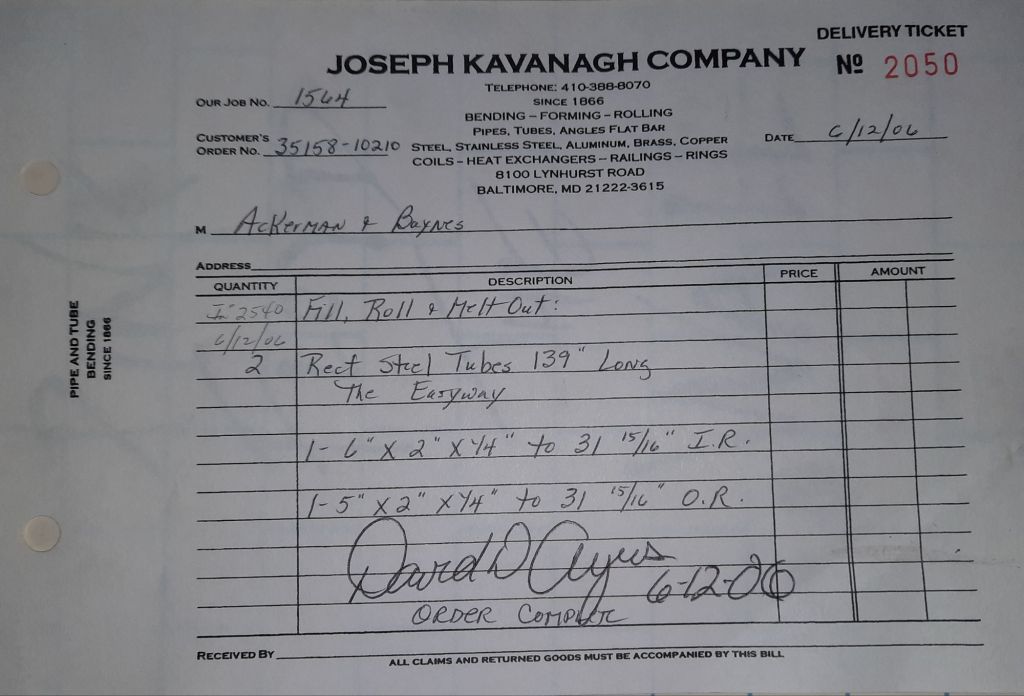 DELIVERY TICKET
JOSEPH KAVANAGH COMPANY
Nº 2050
TELEPHONE: 410-388-8070
OUR JOB NO. 1564
SINCE 1866
BENDING – FORMING – ROLLING
PIPES, TUBES, ANGLES FLAT BAR
CUSTOMER'S ORDER NO. 35158-10210
DATE 6/12/06
STEEL, STAINLESS STEEL, ALUMINUM, BRASS, COPPER
COILS – HEAT EXCHANGERS – RAILINGS – RINGS
8100 LYNHURST ROAD
BALTIMORE, MD 21222-3615
M Ackerman & Baynes
ADDRESS
QUANTITY DESCRIPTION PRICE AMOUNT
2540 Fill, Roll & Melt Out:
6/12/06
2 Rect Steel Tubes 139" Long
The Easyway
1- 6" X 2" X 1/4" to 31 15/16" I.R.
1- 5" X 2" X 1/4" to 31 15/16" O.R.
David D 6-12-06
ORDER COMPLETE
RECEIVED BY
ALL CLAIMS AND RETURNED GOODS MUST BE ACCOMPANIED BY THIS BILL
PIPE AND TUBE
BENDING
SINCE 1866